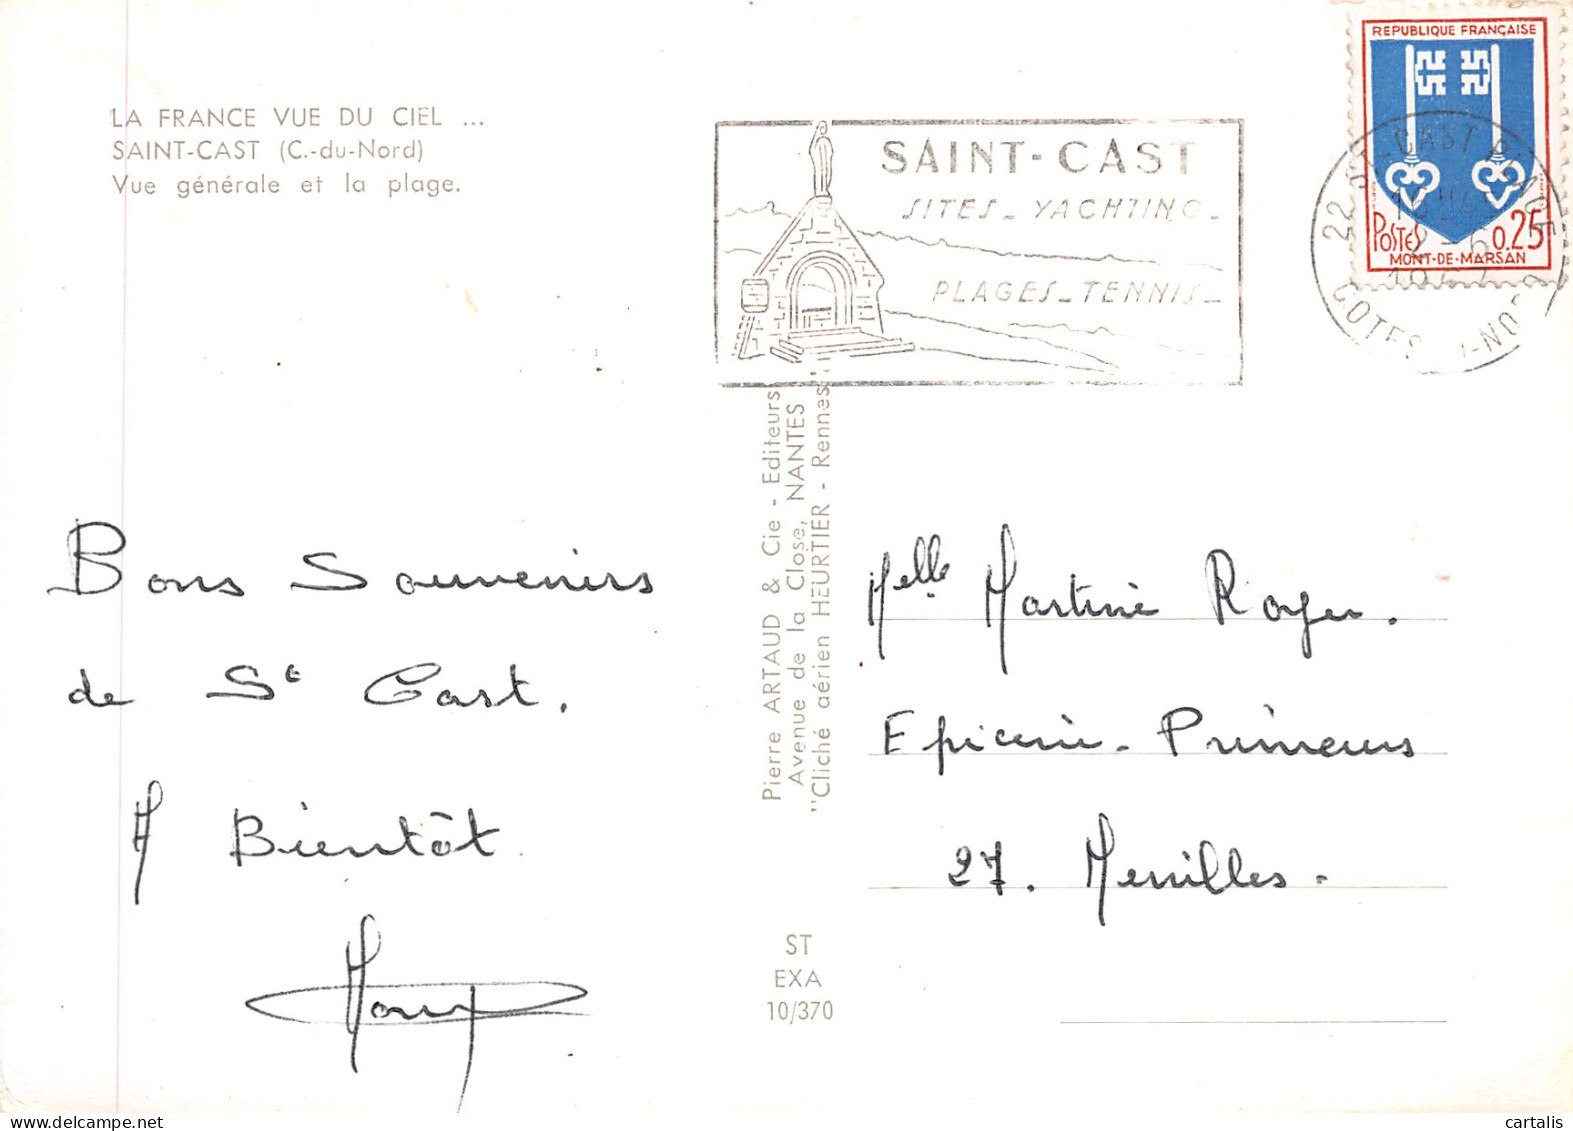 LA FRANCE VUE DU CIEL ...
SAINT-CAST (C.-du-Nord)
Vue générale et la plage.
SAINT-CAST
SITES_YACHTING_
PLAGES_TENNIS_
REPUBLIQUE FRANÇAISE
POSTES 0.25
MONT-DE-MARSAN
22 ST-CAST
COTES
Pierre ARTAUD & Cie - Editeurs
Avenue de la Close, NANTES
"Cliché aérien HEURTIER - Rennes"
Bons Souvenirs
de St Cast.
A Bientôt
Melle Martine Royer.
Epicerie-Primeurs
27. Menilles.
ST
EXA
10/370
cartalis
www.delcampe.net